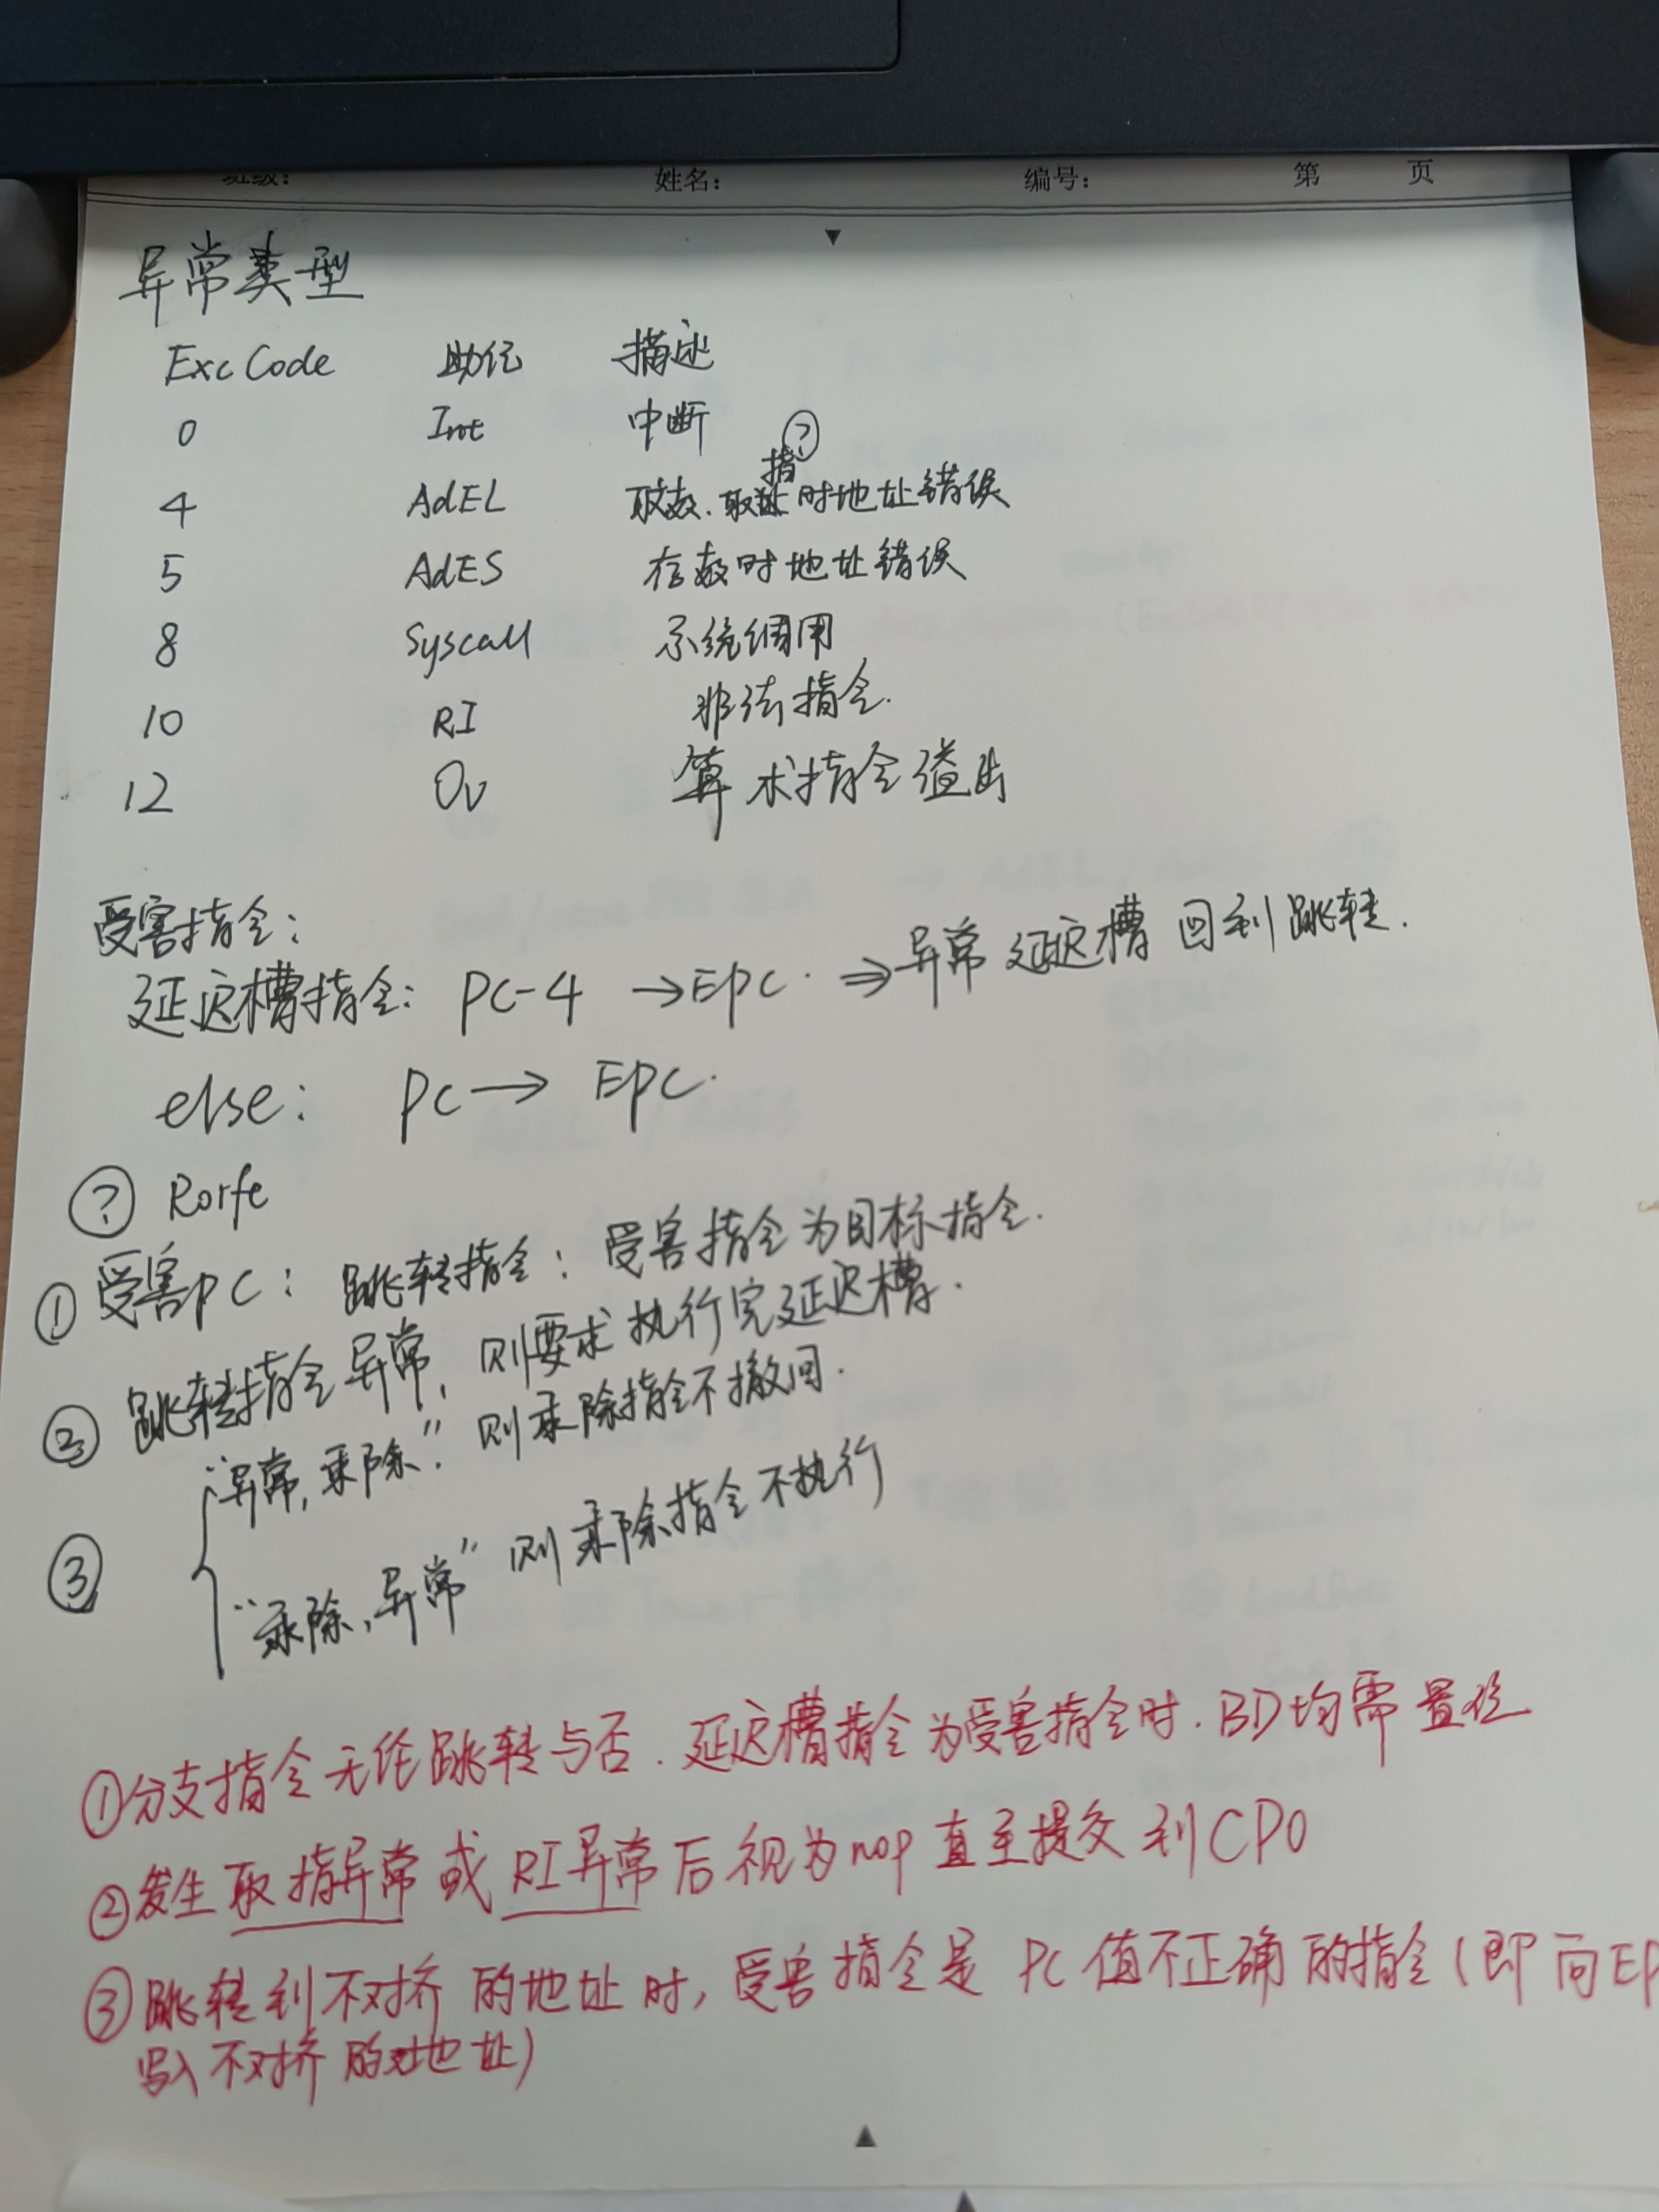 班级： 姓名： 编号： 第 页
异常类型
ExcCode 助记 描述
0 Int 中断
?
指
4 AdEL 取数、取址时地址错误
5 AdES 存数时地址错误
8 Syscall 系统调用
10 RI 非法指令.
12 Ov 算术指令溢出
受害指令：
延迟槽指令： PC-4 → EPC. ⇒ 异常延迟槽回到跳转.
else: PC → EPC.
? Rorfe
① 受害PC： 跳转指令：受害指令为目标指令.
② 跳转指令异常，则要求执行完延迟槽.
③ “异常，乘除”，则乘除指令不撤回.
“乘除，异常” 则乘除指令不执行
①分支指令无论跳转与否.延迟槽指令为受害指令时.BD均需置位
②发生取指异常或RI异常后视为nop直至提交到CP0
③跳转到不对齐的地址时，受害指令是PC值不正确的指令(即向EP
写入不对齐的地址)